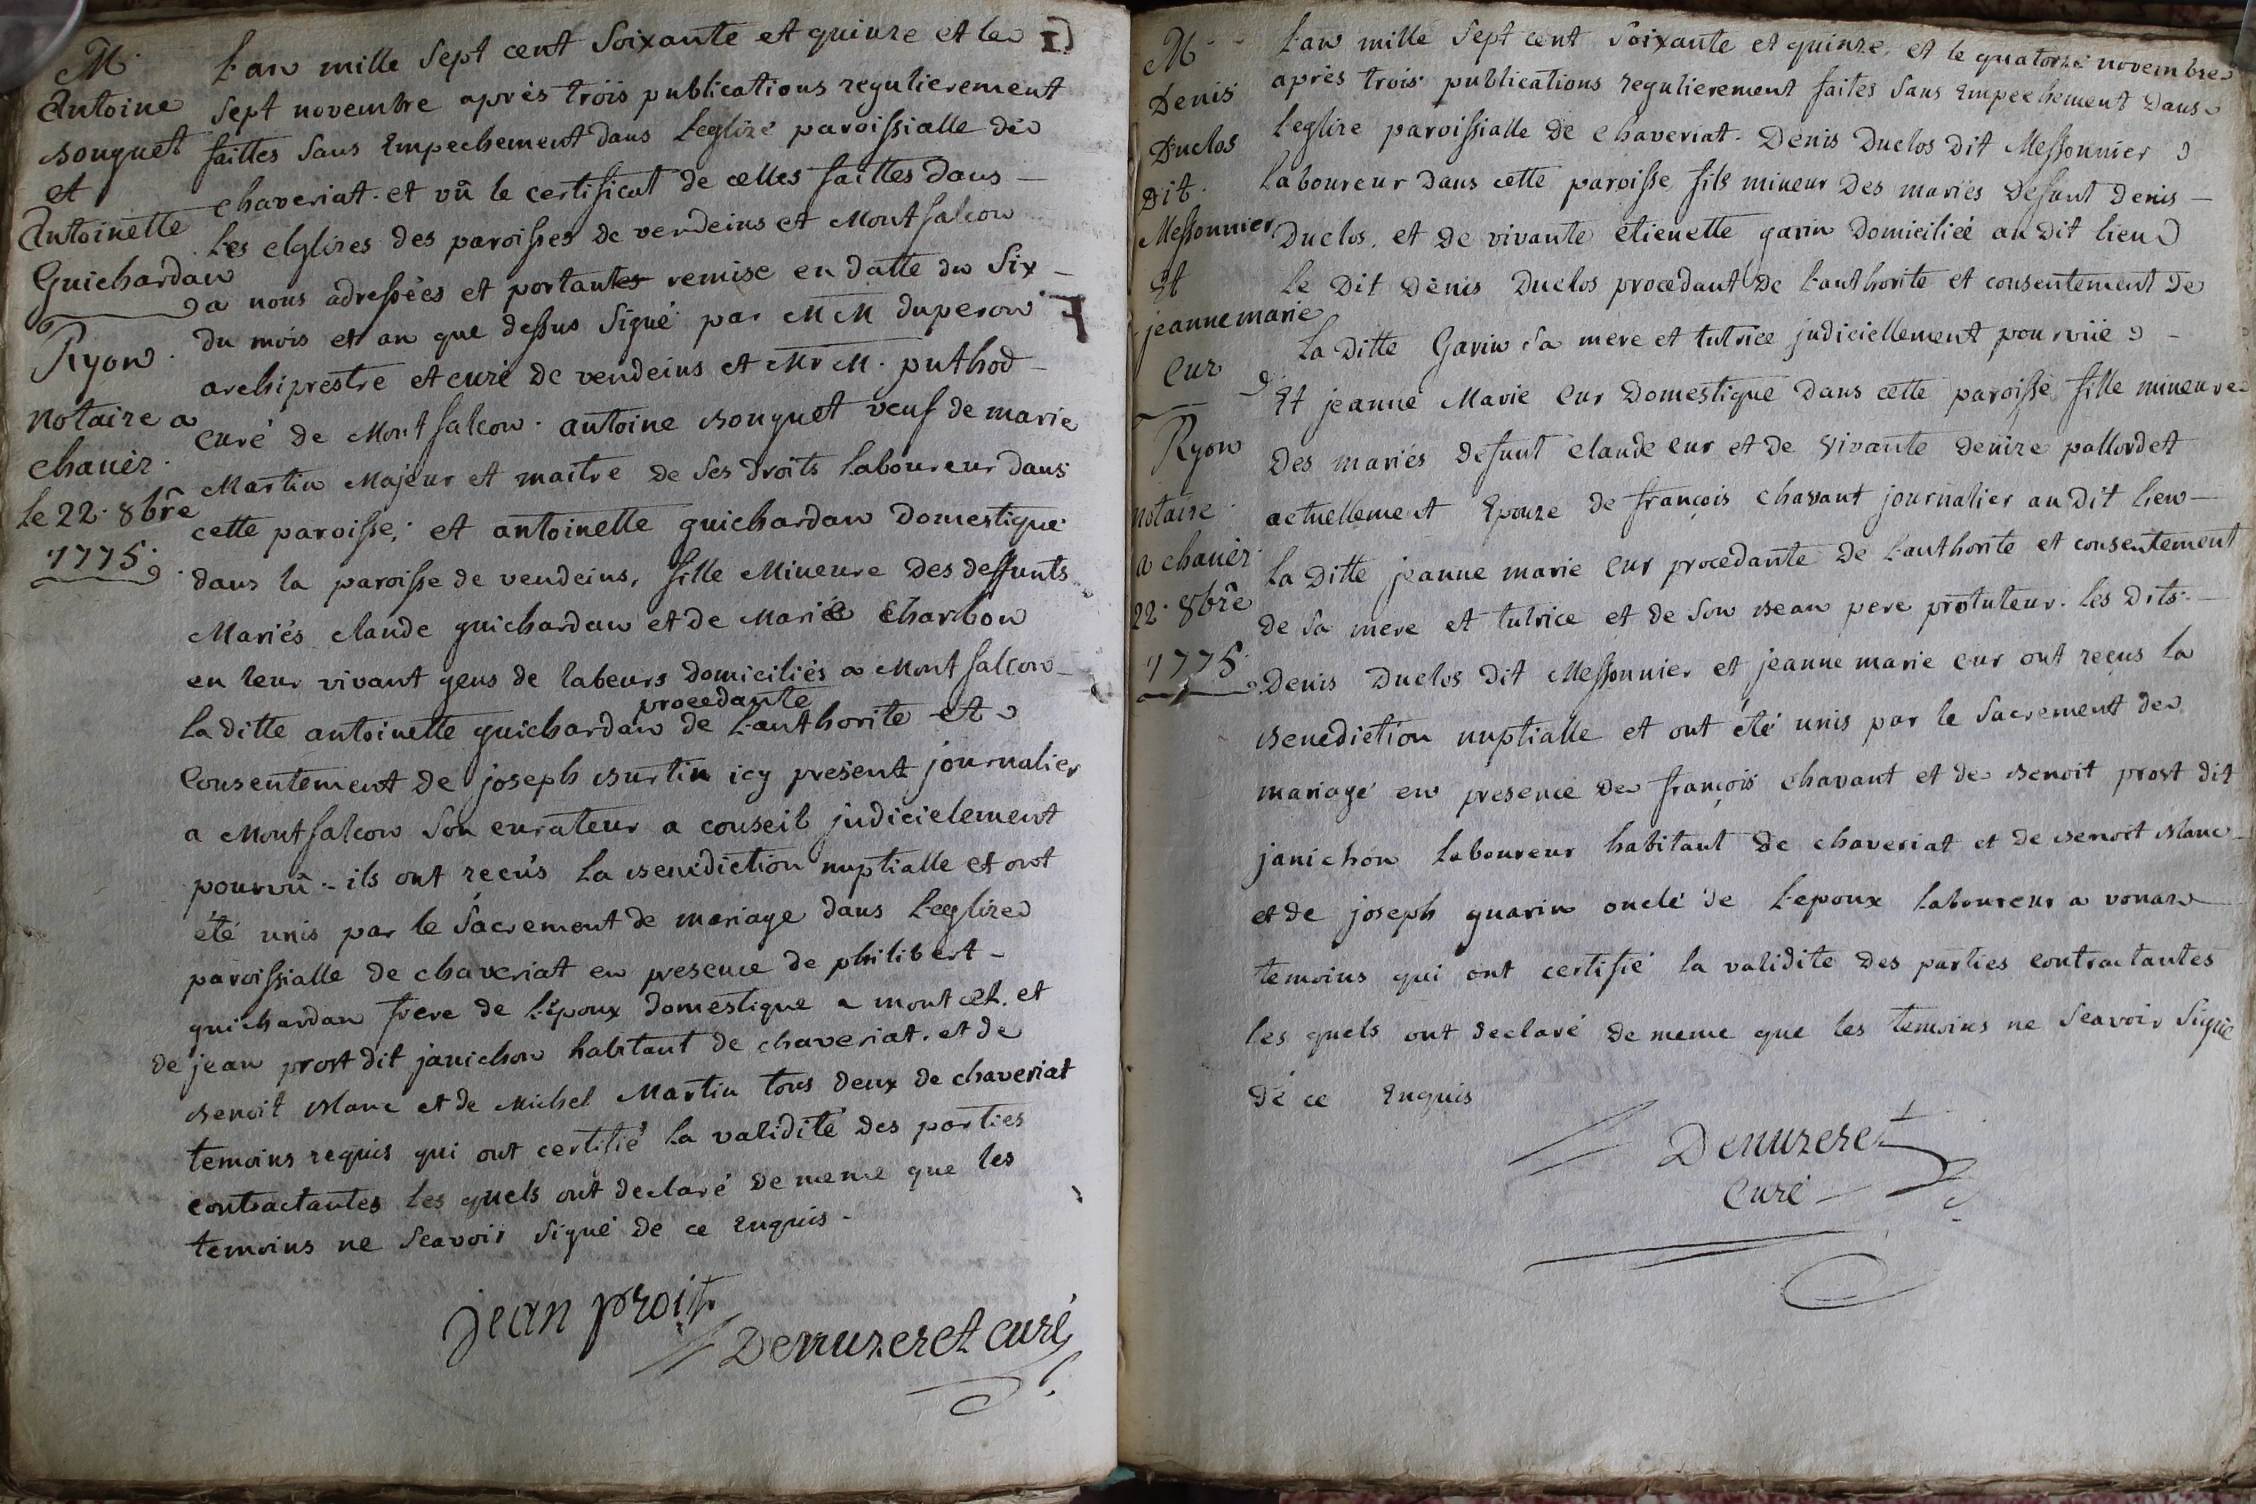 M.
Antoine
Bouquet
et
Antoinette
Guichardan
Ryon
notaire a
chavér.
le 22. 8bre
1775.
L'an mille sept cent soixante et quinze et le
sept novembre aprés trois publications regulierement
faittes sans Empechement dans L'eglize paroissialle de
chaveriat. et vû le certificat de celles faittes dans
Les elglizes des paroisses de vendeins et Montfalcon
a nous adressées et portantes remise en datte du six
du mois et an que dessus signé par MM duperon
archiprestre et curé de vendeins et Mr M. puthod
curé de Montfalcon. antoine Bouquet veuf de marie
Martin Majeur et maitre de ses droits laboureur dans
cette paroisse; et antoinette guichardan Domestique
dans la paroisse de vendeins, fille Mineure des deffunts
Mariés claude guichardan et de Marie Charbon
en leur vivant gens de labeurs domiciliés a Montfalcon
procedante
la ditte antoinette guichardan de L'authorite et
Consentement de joseph Burtin icy present journalier
a Montfalcon son curateur a conseil judicielement
pourvû. ils ont recús la Benediction nuptialle et ont
été unis par le Sacrement de mariage dans L'eglize
paroissialle de chaveriat en presence de philibert
guichardan frere de L'époux domestique a montcet. et
de jean prost dit janichon habitant de chaveriat. et de
Benoit Blanc et de Michel Martin tous deux de chaveriat
temoins requis qui ont certifié la validité des parties
contractantes les quels ont declaré de meme que les
temoins ne Scavoir signé de ce Enquis.
jean proit
Demuzeret curé
M.
Denis
Duclos
Dit
Messonnier
Et
jeanne marie
Cur
Ryon
notaire
a chavér.
22. 8bre
1775.
L'an mille sept cent soixante et quinze, et le quatorze novembre
aprés trois publications regulierement faites sans Empechement dans
L'eglize paroissialle de chaveriat. Denis Duclos dit Messonnier
laboureur dans cette paroisse fils mineur des mariés defunt denis
Duclos. et de vivante etienette garin domiciliée au dit lieu
Le dit Denis Duclos procedant de L'authorite et consentement de
La ditte Garin sa mere et tutrice judiciellement pourvüe
Et jeanne Marie Cur domestique dans cette paroisse fille mineure
des mariés defunt claude cur et de vivante denize pallordet
actuellement Epouze de françois chavant journalier au dit lieu
La ditte jeanne marie Cur procedante de L'authorite et consentement
de sa mere et tutrice et de son Beau pere protuteur. les dits
Denis Duclos dit Messonnier et jeanne marie cur ont reçus la
Benediction nuptialle et ont été unis par le Sacrement de
mariage en presence de françois chavant et de Benoit prost dit
janichon laboureur habitant de chaveriat et de Benoit Blanc
et de joseph guarin oncle de L'epoux laboureur a vonax
temoins qui ont certifié la validite des parties contractantes
les quels ont declaré de meme que les temoins ne Scavoir signé
de ce Enquis
Demuzeret
Curé